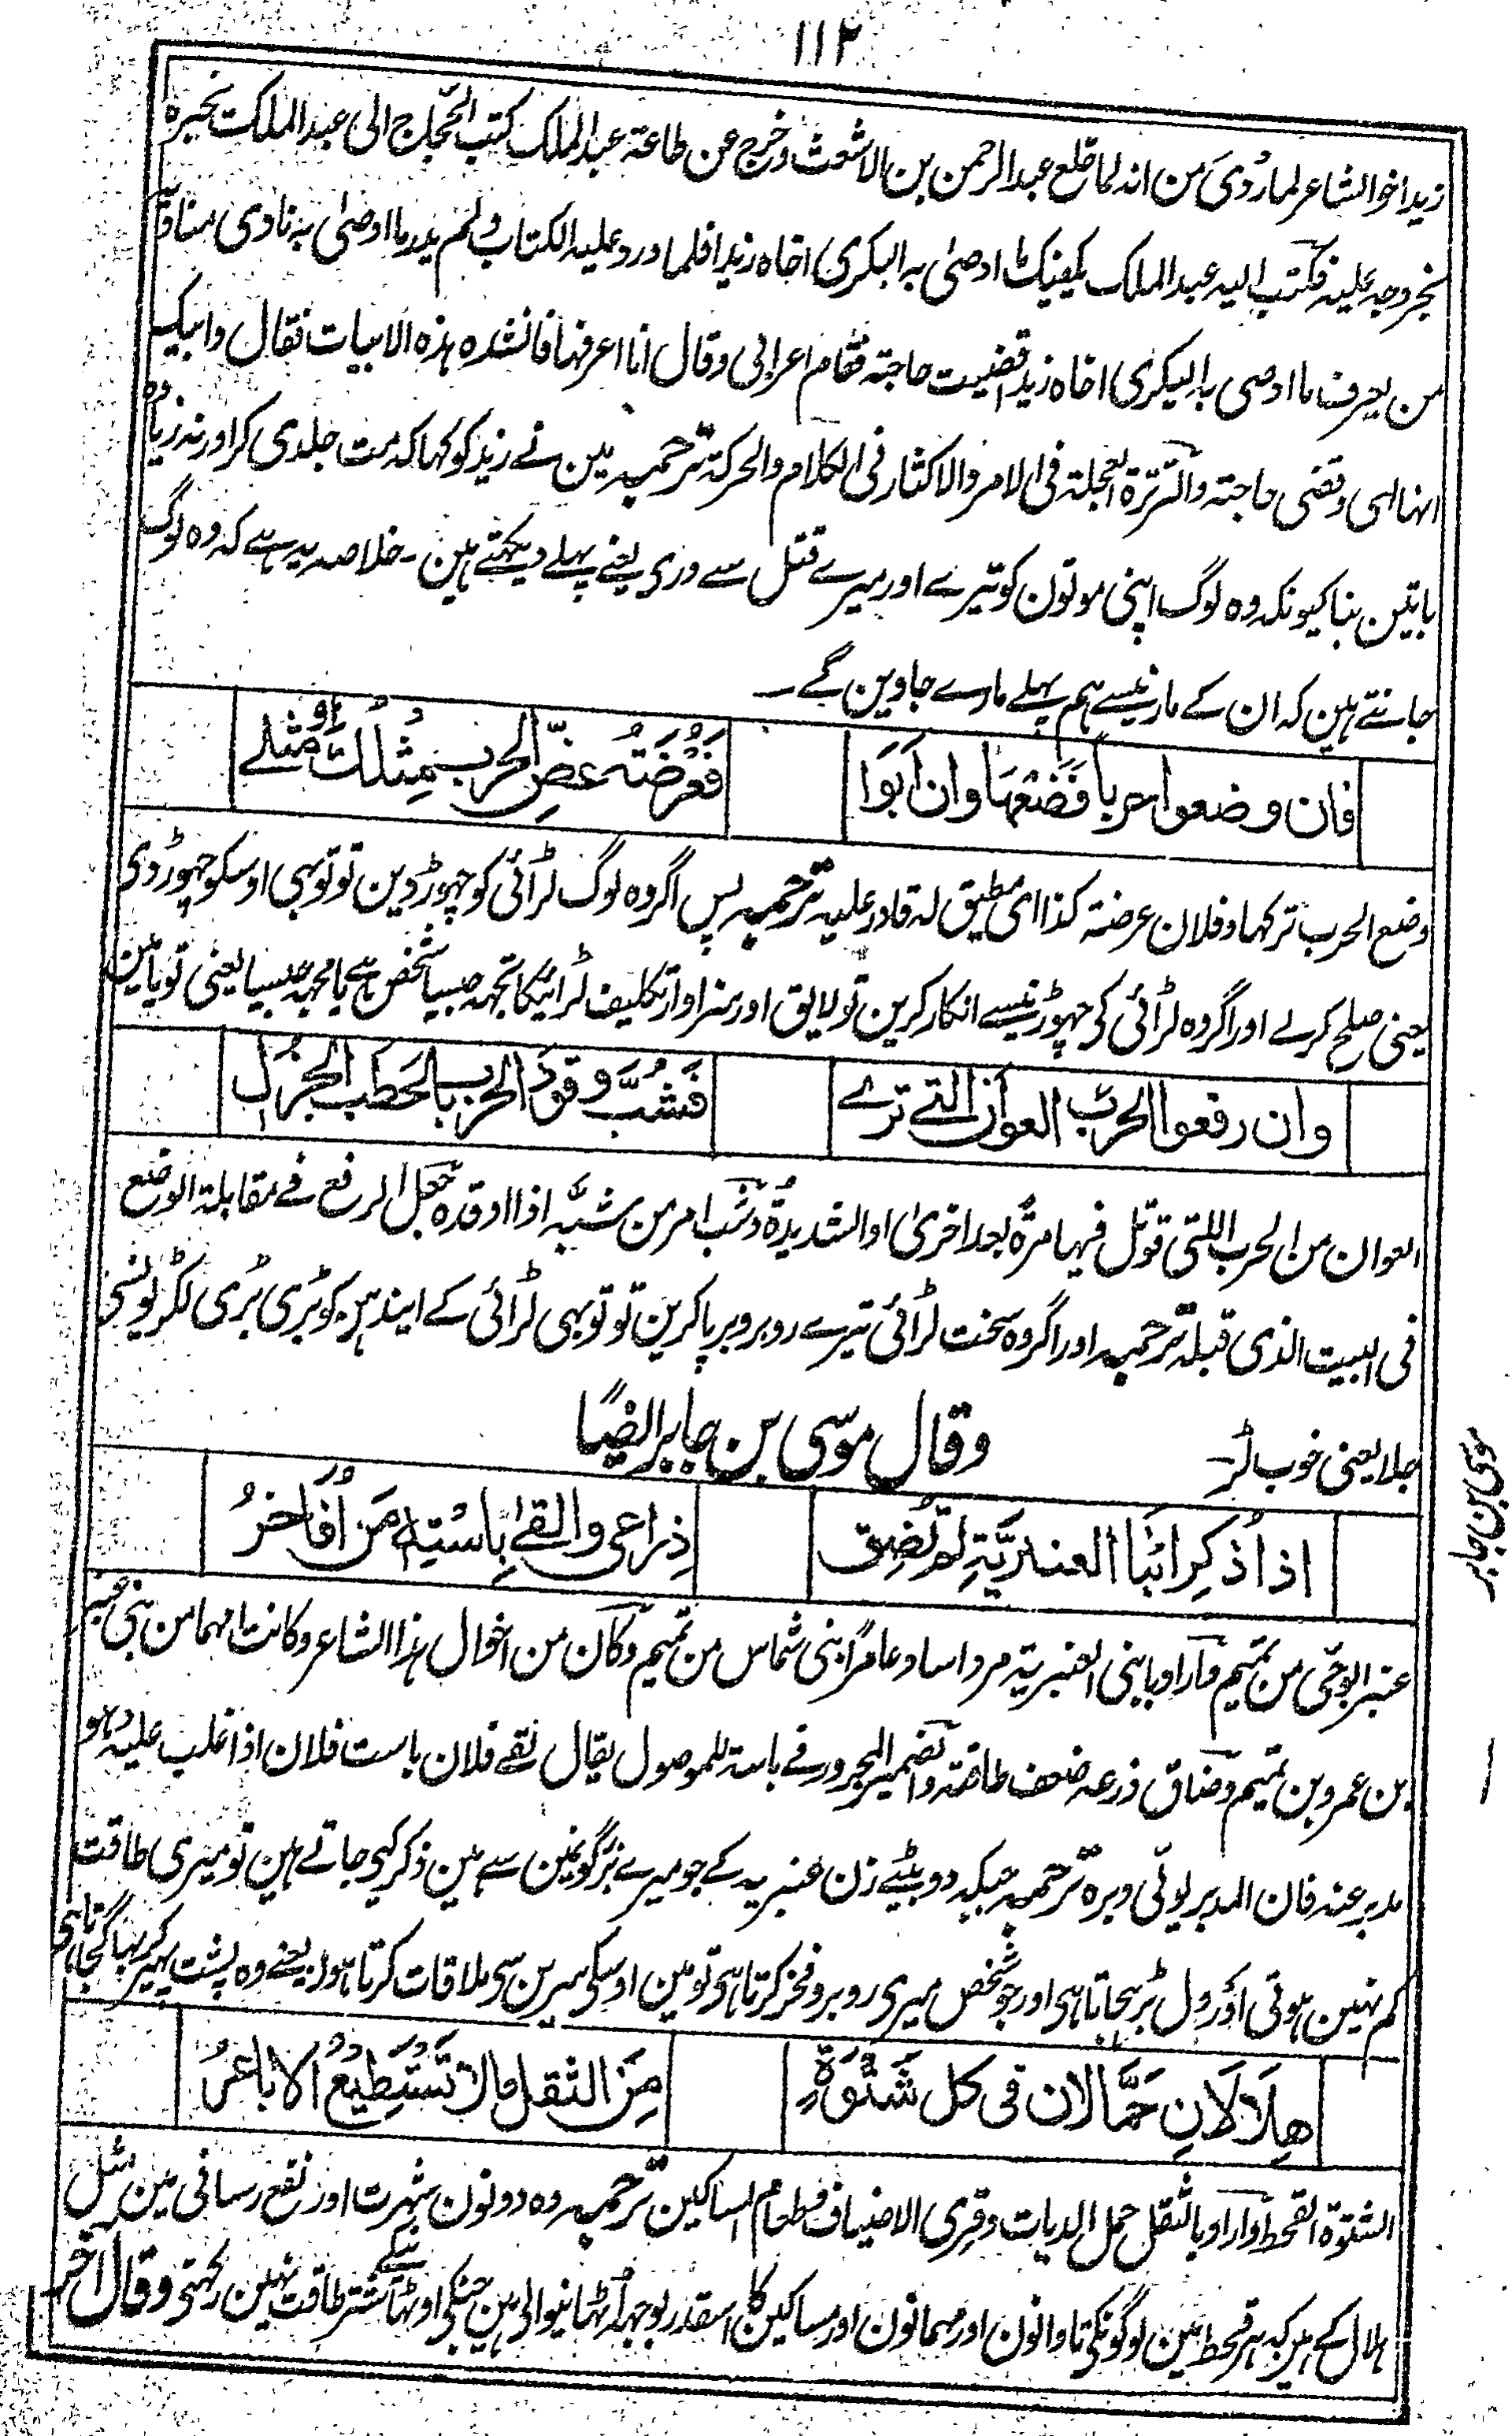 ۱۱۲
زیدا خوالشاعر لماروی من انه لما خلع عبدالرحمن بن الاشعث وخرج عن طاعة عبدالملک کتب الحجاج الی عبدالملک یخبره
بخروجه علیه فکتب الیه عبدالملک یکفیک ما اوصیٰ به البکری اخاه زیدا فلما ورد علیه الکتاب ولم یدر ما اوصیٰ به نادی مناد
من یعرف ما اوصی به البکری اخاه زیدا قضیت حاجته فقام اعرابی وقال انا اعرفها فانشده هذه الابیات فقال وابیک
انها هی وقضی حاجته والترترة العجلة فی الامر والاکثار فی الکلام والحرکة ترجمہ مین نے زید کو کہا کہ مت جلدی کر اور نہ زیادہ
باتین بنا کیونکہ وہ لوگ اپنی موتون کو تیرے اور میرے قتل سے وری یعنے پہلے دیکھتے ہین - خلاصہ یہ ہے کہ وہ لوگ
جانتے ہین کہ ان کے مارنیسے ہم پہلے مارے جاوین گے -
فان وضعوا حرباً فَضَعْهَا وان اَبَوْا
فَعُرْضَةُ عضِّ الحرب مِثْلُكَ اَوْ مثلے
وضع الحرب ترکها وفلان عرضة کذا ای مطیق له قادر علیه ترجمہ پس اگر وہ لوگ لڑائی کو چھوڑ دین تو تو بہی اوسکو چھوڑ دی
یعنی صلح کرلے اور اگر وہ لڑائی کی چھوڑنیسے انکار کرین تو لایق اور سزاوار تکلیف لڑائیکا تجھہ جیسا شخص ہے یا مجھہ جیسا یعنی تو یا مین
وان رفعوا الحرب العوانَ التے ترے
فَشُبَّ وقودَ الحرب بالحَطَبِ الجَزْلِ
العوان من الحرب اللتی قوتل فیها مرة بعد اخریٰ او الشدیدة وشب امر من شبه اذا اوقده جعل الرفع فے مقابلة الوضع
فی البیت الذی قبله ترجمہ اور اگر وہ سخت لڑائی تیرے روبرو برپا کرین تو تو بہی لڑائی کے ایندہن کو بڑی بڑی لکڑیونسے
جلا یعنی خوب لڑ -
وقال موسی بن جابر ایضًا
اذا ذُكِرَ ابْنَا العنبريَّةِ لم تَضِق
ذِراعی والقے بِاسْتِهٖ مَن اُفَاخِرُ
عنبر ابو حی من تمیم واراد بابنی العنبریة مرداسا وعامرا بنی شماس من تمیم وکان من اخوال هذا الشاعر وکانت امهما من بنی عنبر
بن عمرو بن تمیم وضاق ذرعه ضعف طاقته والضمیر المجرور فے باسته للموصول یقال لقے فلان باست فلان اذا غلب علیه وهو
مدبر عنه فان المدبر یولی دبره ترجمہ جبکہ دو بیٹے زن عنبریہ کے جو میرے بزرگونمین سے ہین ذکر کیے جاتے ہین تو میری طاقت
کم نہین ہوتی اور دل بڑہجاتا ہی اور جو شخص میری روبرو فخر کرتا ہی تو مین اوسکی سرین سی ملاقات کرتا ہون یعنے وہ پشت پہیر کر بہاگ جاتا ہی
هِلَالَانِ حَمَّالَان فی كل شَتْوَةٍ
مِنَ الثقل مالا تَسْتَطِيْعُ الاباعرُ
الشتوة القحط واراد بالثقل حمل الدیات وقری الاضیاف وطعام المساکین ترجمہ وہ دونون شہرت اور نفع رسانی مین مثل
ہلال کے ہین کہ ہر قحط مین لوگونکی تاوانون اور مہمانون اور مساکین کا اسقدر بوجھہ اُٹھانیوالی ہین جنکی اوٹھانیکے شتر طاقت نہین رکہتی وقال آخر
موسیٰ بن جابر